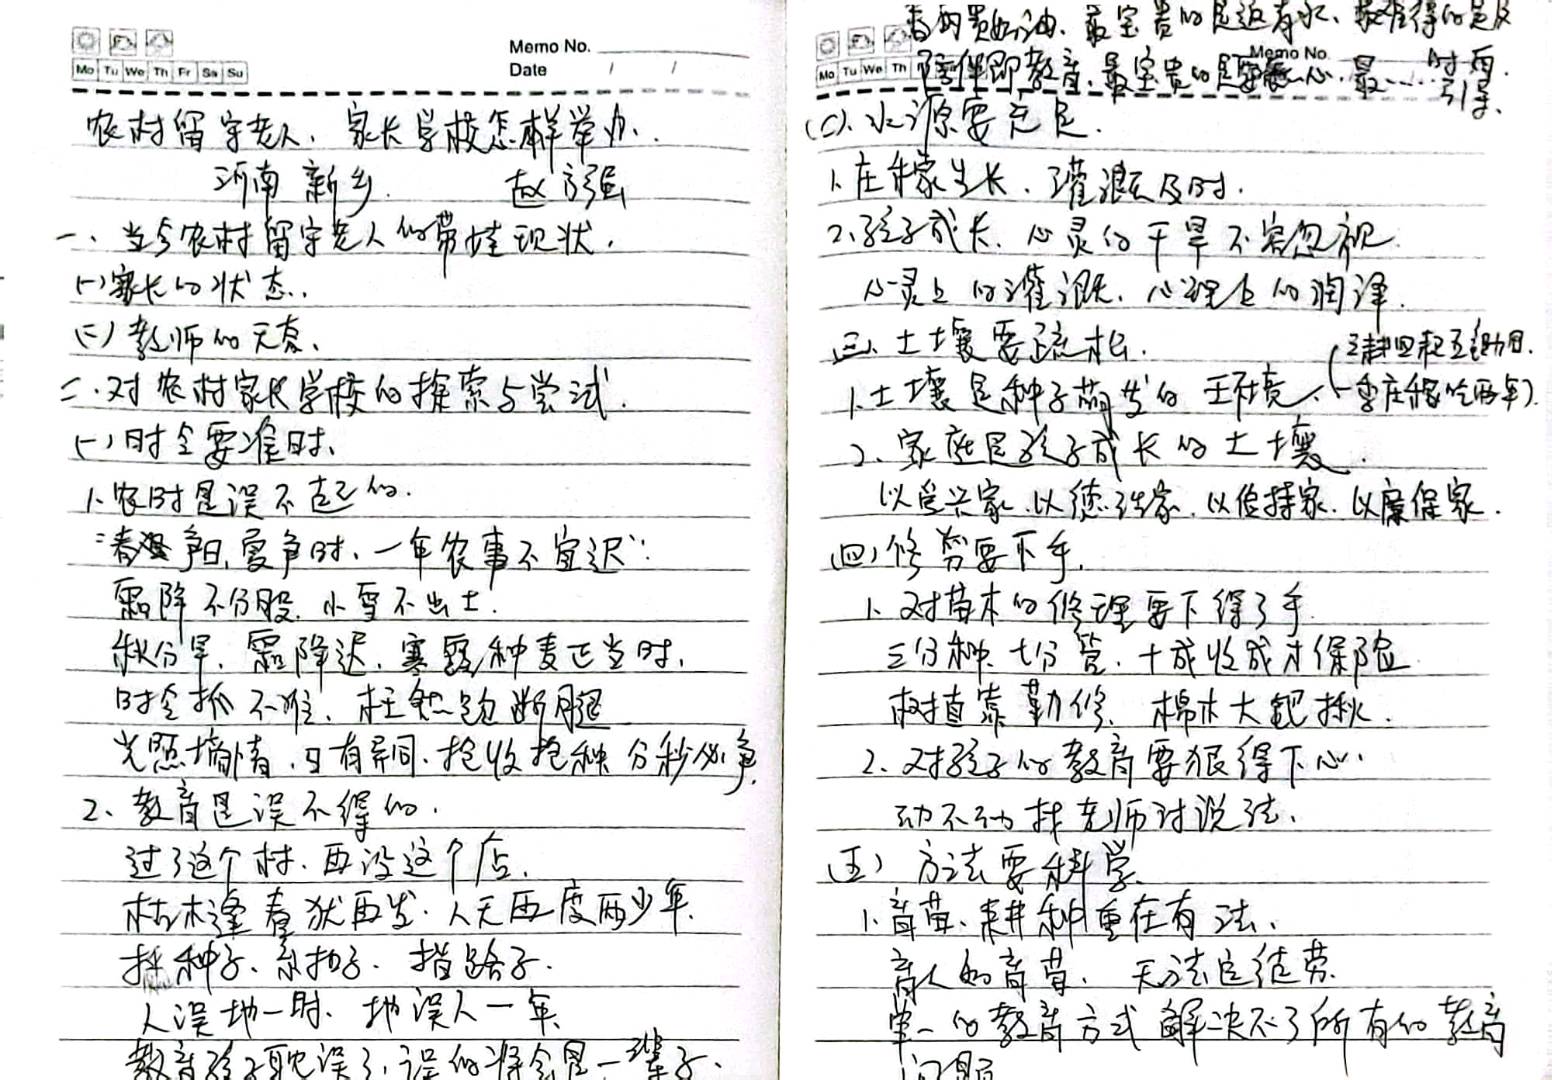 Memo No.
Mo Tu We Th Fr Sa Su
Date / /
农村留守老人、家长学校怎样举办.
河南 新乡. 赵方强
一、当今农村留守老人的带娃现状.
(一)家长的状态.
(二)教师的无奈.
二.对农村家长学校的探索与尝试.
(一)时令要准时.
1.农时是误不起的.
"春争日,夏争时,一年农事不宜迟".
霜降不分股,小雪不出土.
秋分早,霜降迟,寒露种麦正当时.
时令抓不准,枉然跑断腿
光照墒情,日有异同.抢收抢种 分秒必争.
2、教育是误不得的.
过了这个村.再没这个店.
枯木逢春犹再发.人无再度两少年.
人误地一时、地误人一年.
教育孩子耽误了,误的将会是一辈子.
春雨贵如油.最宝贵的是返青水、最难得的是及时雨.
陪伴即教育,最宝贵的是 心,最…引导.
Memo No.
Mo Tu We Th
(二).水源要充足.
1.庄稼生长、灌溉及时.
2.孩子成长、心灵的干旱不容忽视.
心灵上的灌溉、心理上的润泽.
三、土壤要疏松.
1.土壤是种子萌发的环境.
2、家庭是孩子成长的土壤.
以学兴家.以德治家.以俭持家.以廉保家.
(四)修剪要下手.
1.对苗木的修理要下得了手.
三分种、七分管.十成收成才保险
树直靠勤修、棉木大把揪.
2.对孩子的教育要狠得下心.
动不动找老师讨说法.
(五)方法要科学.
1.育苗、耕种重在有法.
育人如育苗. 无法是徒劳.
单一的教育方式解决不了所有的教育
问题